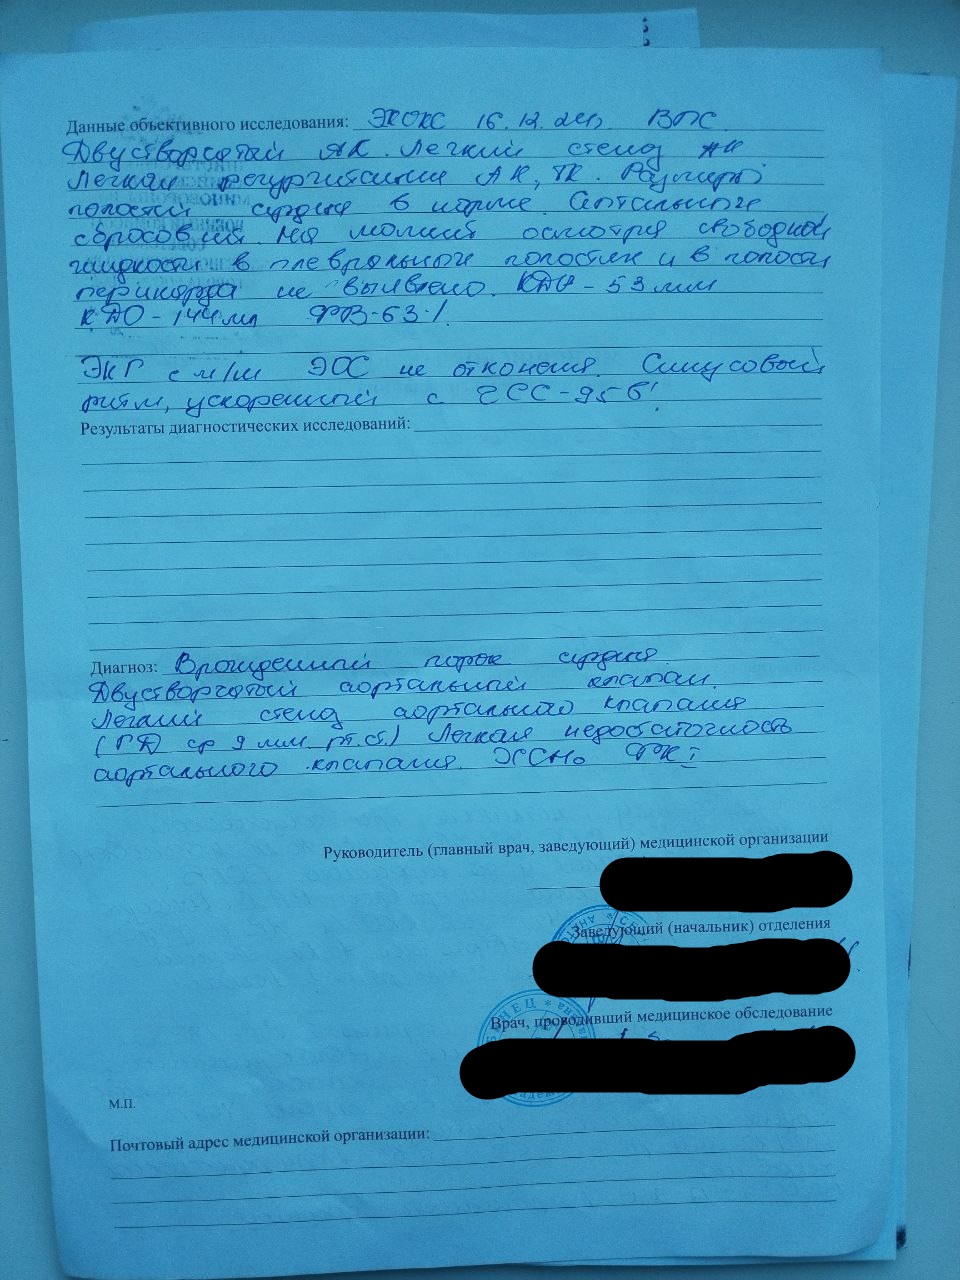 Данные объективного исследования: ЭХОКС 16.12.24г. ВПС
Двустворчатый АК. Легкий стеноз АК
Легкая регургитация АК, ТК. Размеры
полостей сердца в норме. Септальных
сбросов нет. На момент осмотра свободной
жидкости в плевральных полостях и в полости
перикарда не выявлено. КДР - 53 мм
КДО - 144 мл ФВ-63%
ЭКГ с м/ж ЭОС не отклонена. Синусовый
ритм, ускоренный с ЧСС-95 в'.
Результаты диагностических исследований:
Диагноз: Врожденный порок сердца.
Двустворчатый аортальный клапан.
Легкий стеноз аортального клапана
(ГД ср 9 мм. рт. ст.) Легкая недостаточность
аортального клапана. ХСН0 ФК I
Руководитель (главный врач, заведующий) медицинской организации
Заведующий (начальник) отделения
Врач, проводивший медицинское обследование
М.П.
Почтовый адрес медицинской организации: